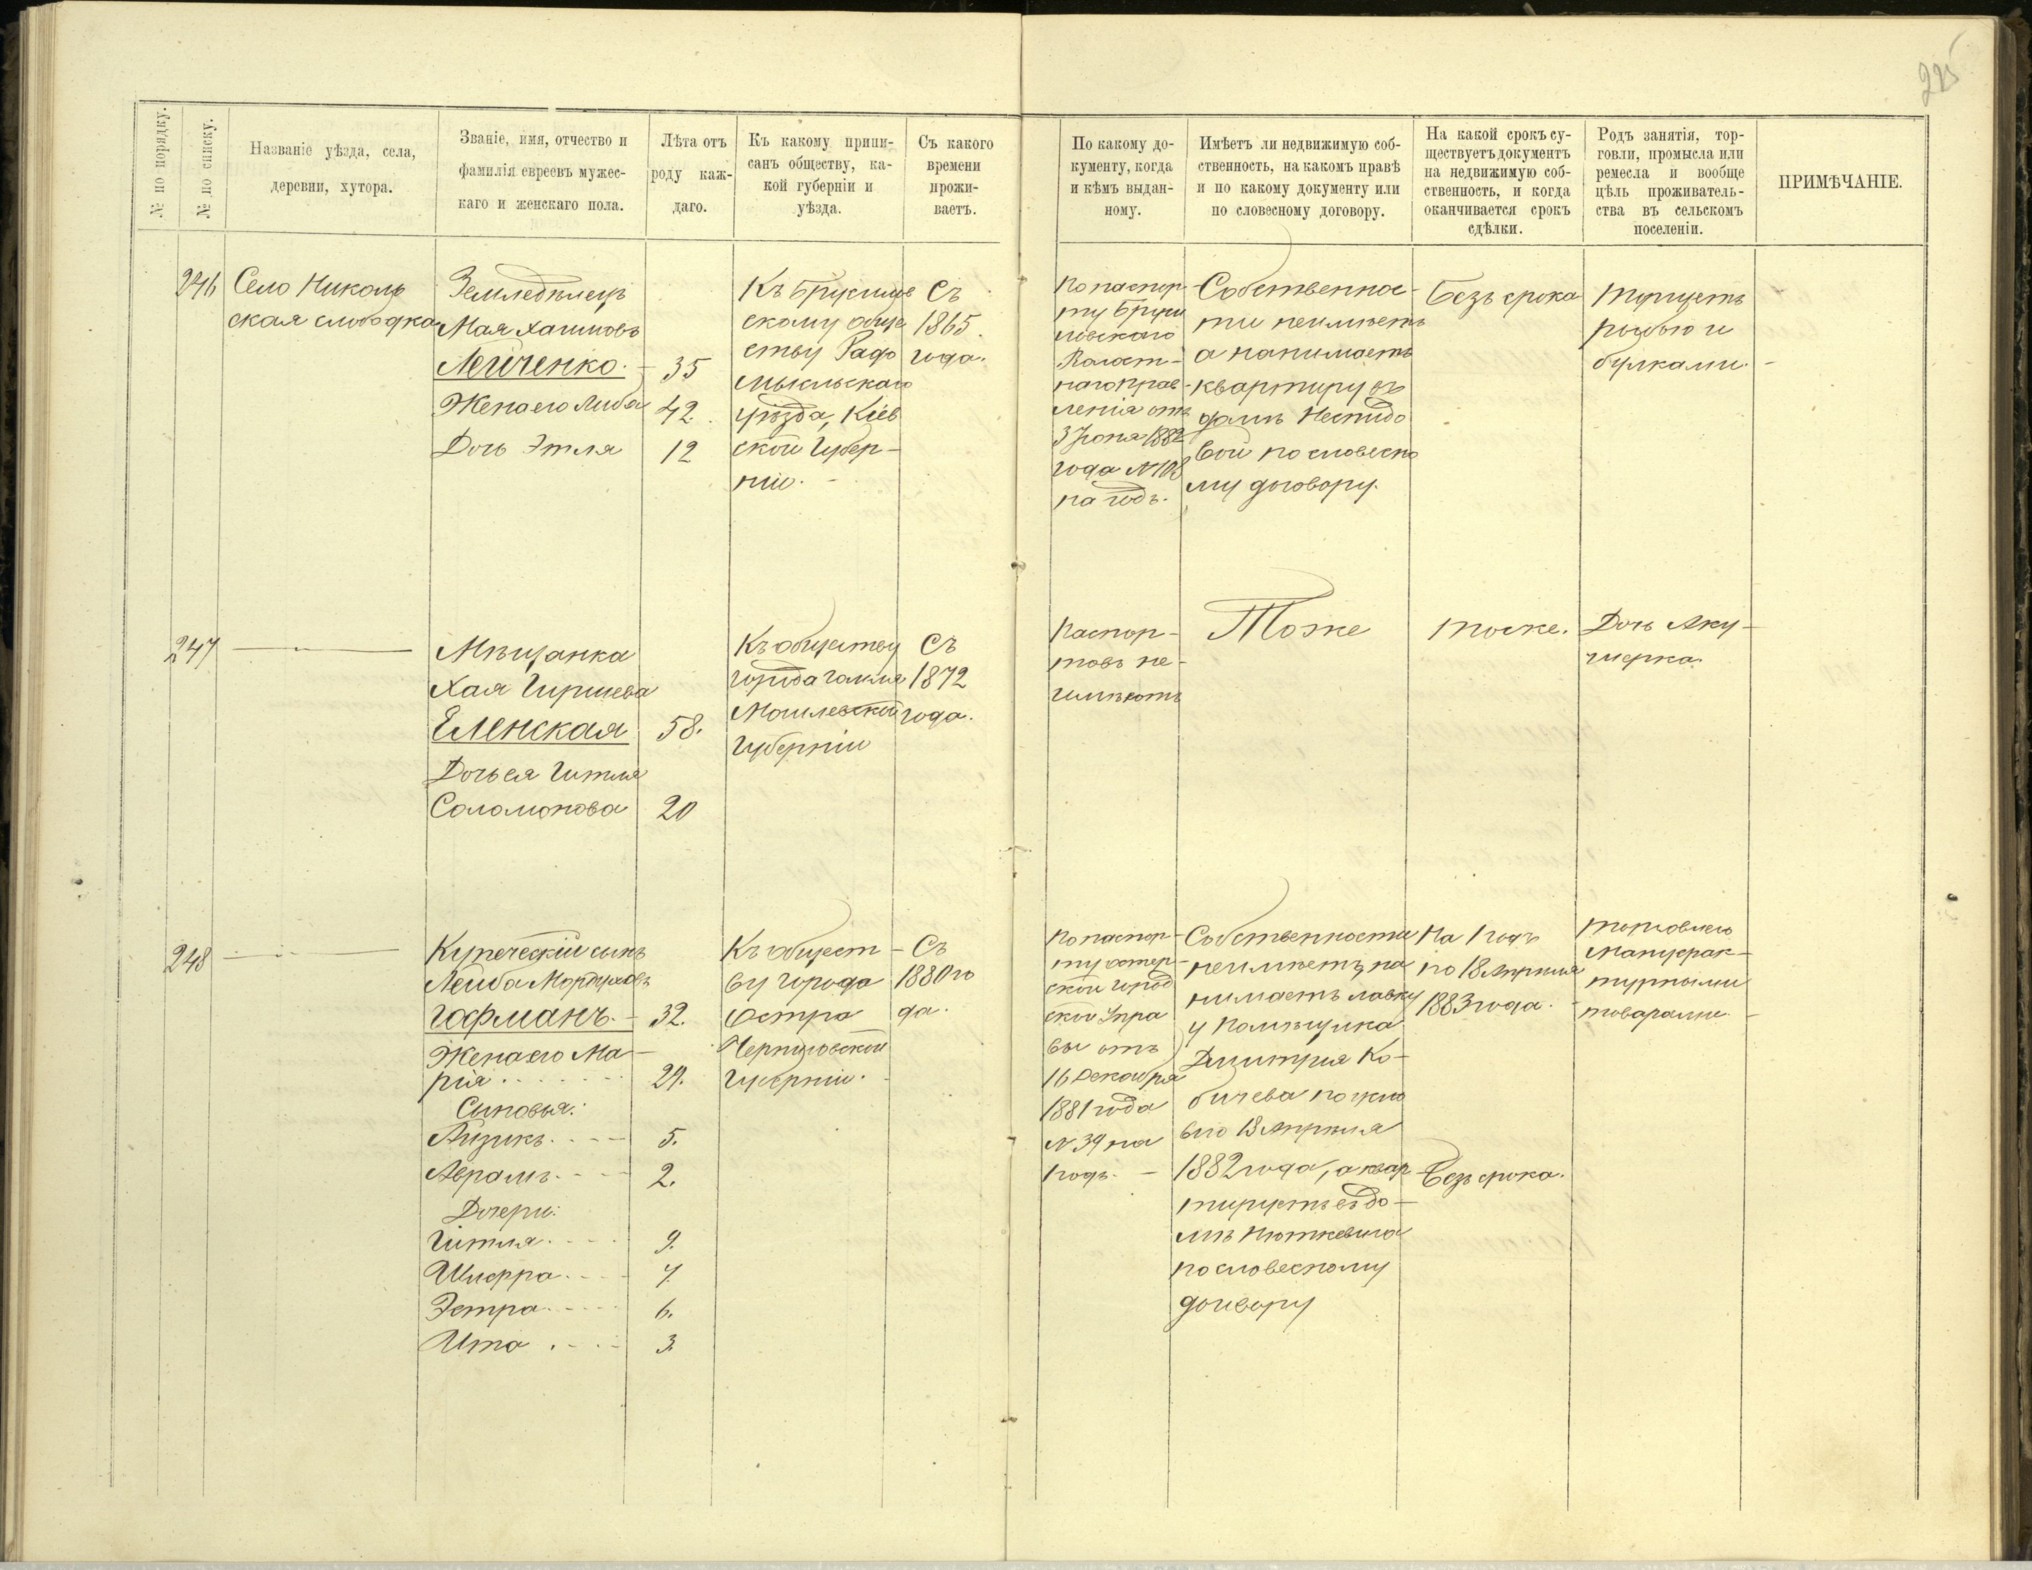 225
№ по порядку.
№ по списку.
Названіе уѣзда, села,
деревни, хутора.
Званіе, имя, отчество и
фамилія евреевъ мужес-
каго и женскаго пола.
Лѣта отъ
роду каж-
даго.
Къ какому припи-
санъ обществу, ка-
кой губерніи и
уѣзда.
Съ какого
времени
прожи-
ваетъ.
По какому до-
кументу, когда
и кѣмъ выдан-
ному.
Имѣетъ ли недвижимую соб-
ственность, на какомъ правѣ
и по какому документу или
по словесному договору.
На какой срокъ су-
ществуетъ документъ
на недвижимую соб-
ственность, и когда
оканчивается срокъ
сдѣлки.
Родъ занятія, тор-
говли, промысла или
ремесла и вообще
цѣль проживатель-
ства въ сельскомъ
поселеніи.
ПРИМѢЧАНІЕ.
246
Село Николь
ская слободка
Земледѣлецъ
Мая Хаимовъ
Лейченко. 35
Жена его Либа 42.
Дочь Этля 12
Къ Брусилов
скому обще
ству Радо
мысльскаго
уѣзда, Кіев
ской Губер-
ніи.
Съ
1865
года.
По паспор
ту Бруси
ловскаго
Волост-
наго Прав-
ленія отъ
3 Іюня 1882
года №108
на годъ.
Собственнос-
ти неимѣетъ
а нанимаетъ
квартиру въ
домѣ
вой по словесно
му договору.
Безъ срока
Торгуетъ
рыбою и
булками.
247
Мѣщанка
Хая Гиршева
Еленская 58.
Дочь ея Гитля
Соломонова 20
Къ обществу
города Гомля
Могилевской
Губерніи
Съ
1872
года.
Паспор-
товъ не-
имѣютъ
Тоже
тоже.
Дочь Аку-
шерка.
248
Купеческій сынъ
Лейба Мордуховъ
Гофманъ. 32.
Жена его Ма-
рія 29.
Сыновья:
Айзикъ. 5.
Абрамъ. 2.
Дочери:
Гитля. 9.
Шифра. 7.
Эстра. 6.
Ита. 3.
Къ общест-
ву города
Остра
Черниговской
Губерніи.
Съ
1880 го
да.
По паспор-
ту Остер-
ской Город
ской Упра
вы отъ
16 Декабря
1881 года
№ 39 на
1 годъ.
Собственности
неимѣетъ, на
нимаетъ лавку
у помѣщика
Дмитрія Ко-
бичева по усло
вію 18 Апрѣля
1882 года, а квар
тируетъ въ до-
мѣ Юткевича
по словесному
договору
На 1 годъ
по 18 Апрѣля
1883 года.
Безъ срока.
Торговлею
Мануфак-
турными
товарами.